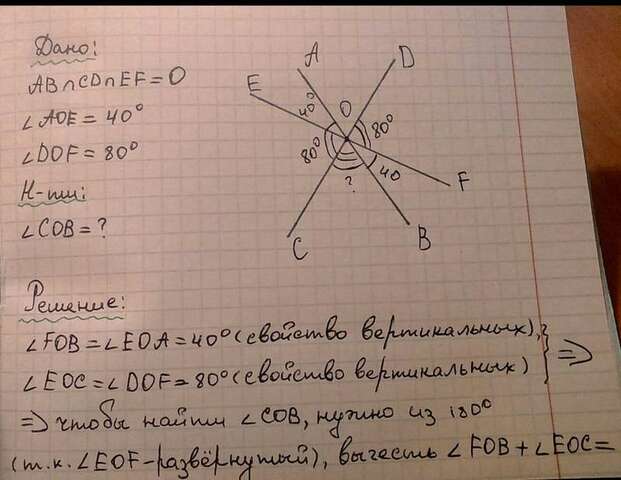 Дано:
AB∩CD∩EF=O
∠AOE=40°
∠DOF=80°
Н-ти:
∠COB=?
A
D
E
40°
O
80°
80°
?
40
F
C
B
Решение:
∠FOB=∠EOA=40°(свойство вертикальных),
∠EOC=∠DOF=80°(свойство вертикальных) } =>
=> чтобы найти ∠COB, нужно из 180°
(т.к. ∠EOF-развёрнутый), вычесть ∠FOB+∠EOC=